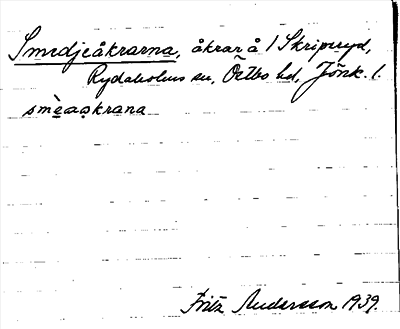 Smedjeåkrarna, åkrar å 1 Skripsryd,
Rydaholms sn, Östbo hd, Jönk. l.
smèaǫkrana
Fritz Andersson 1939.